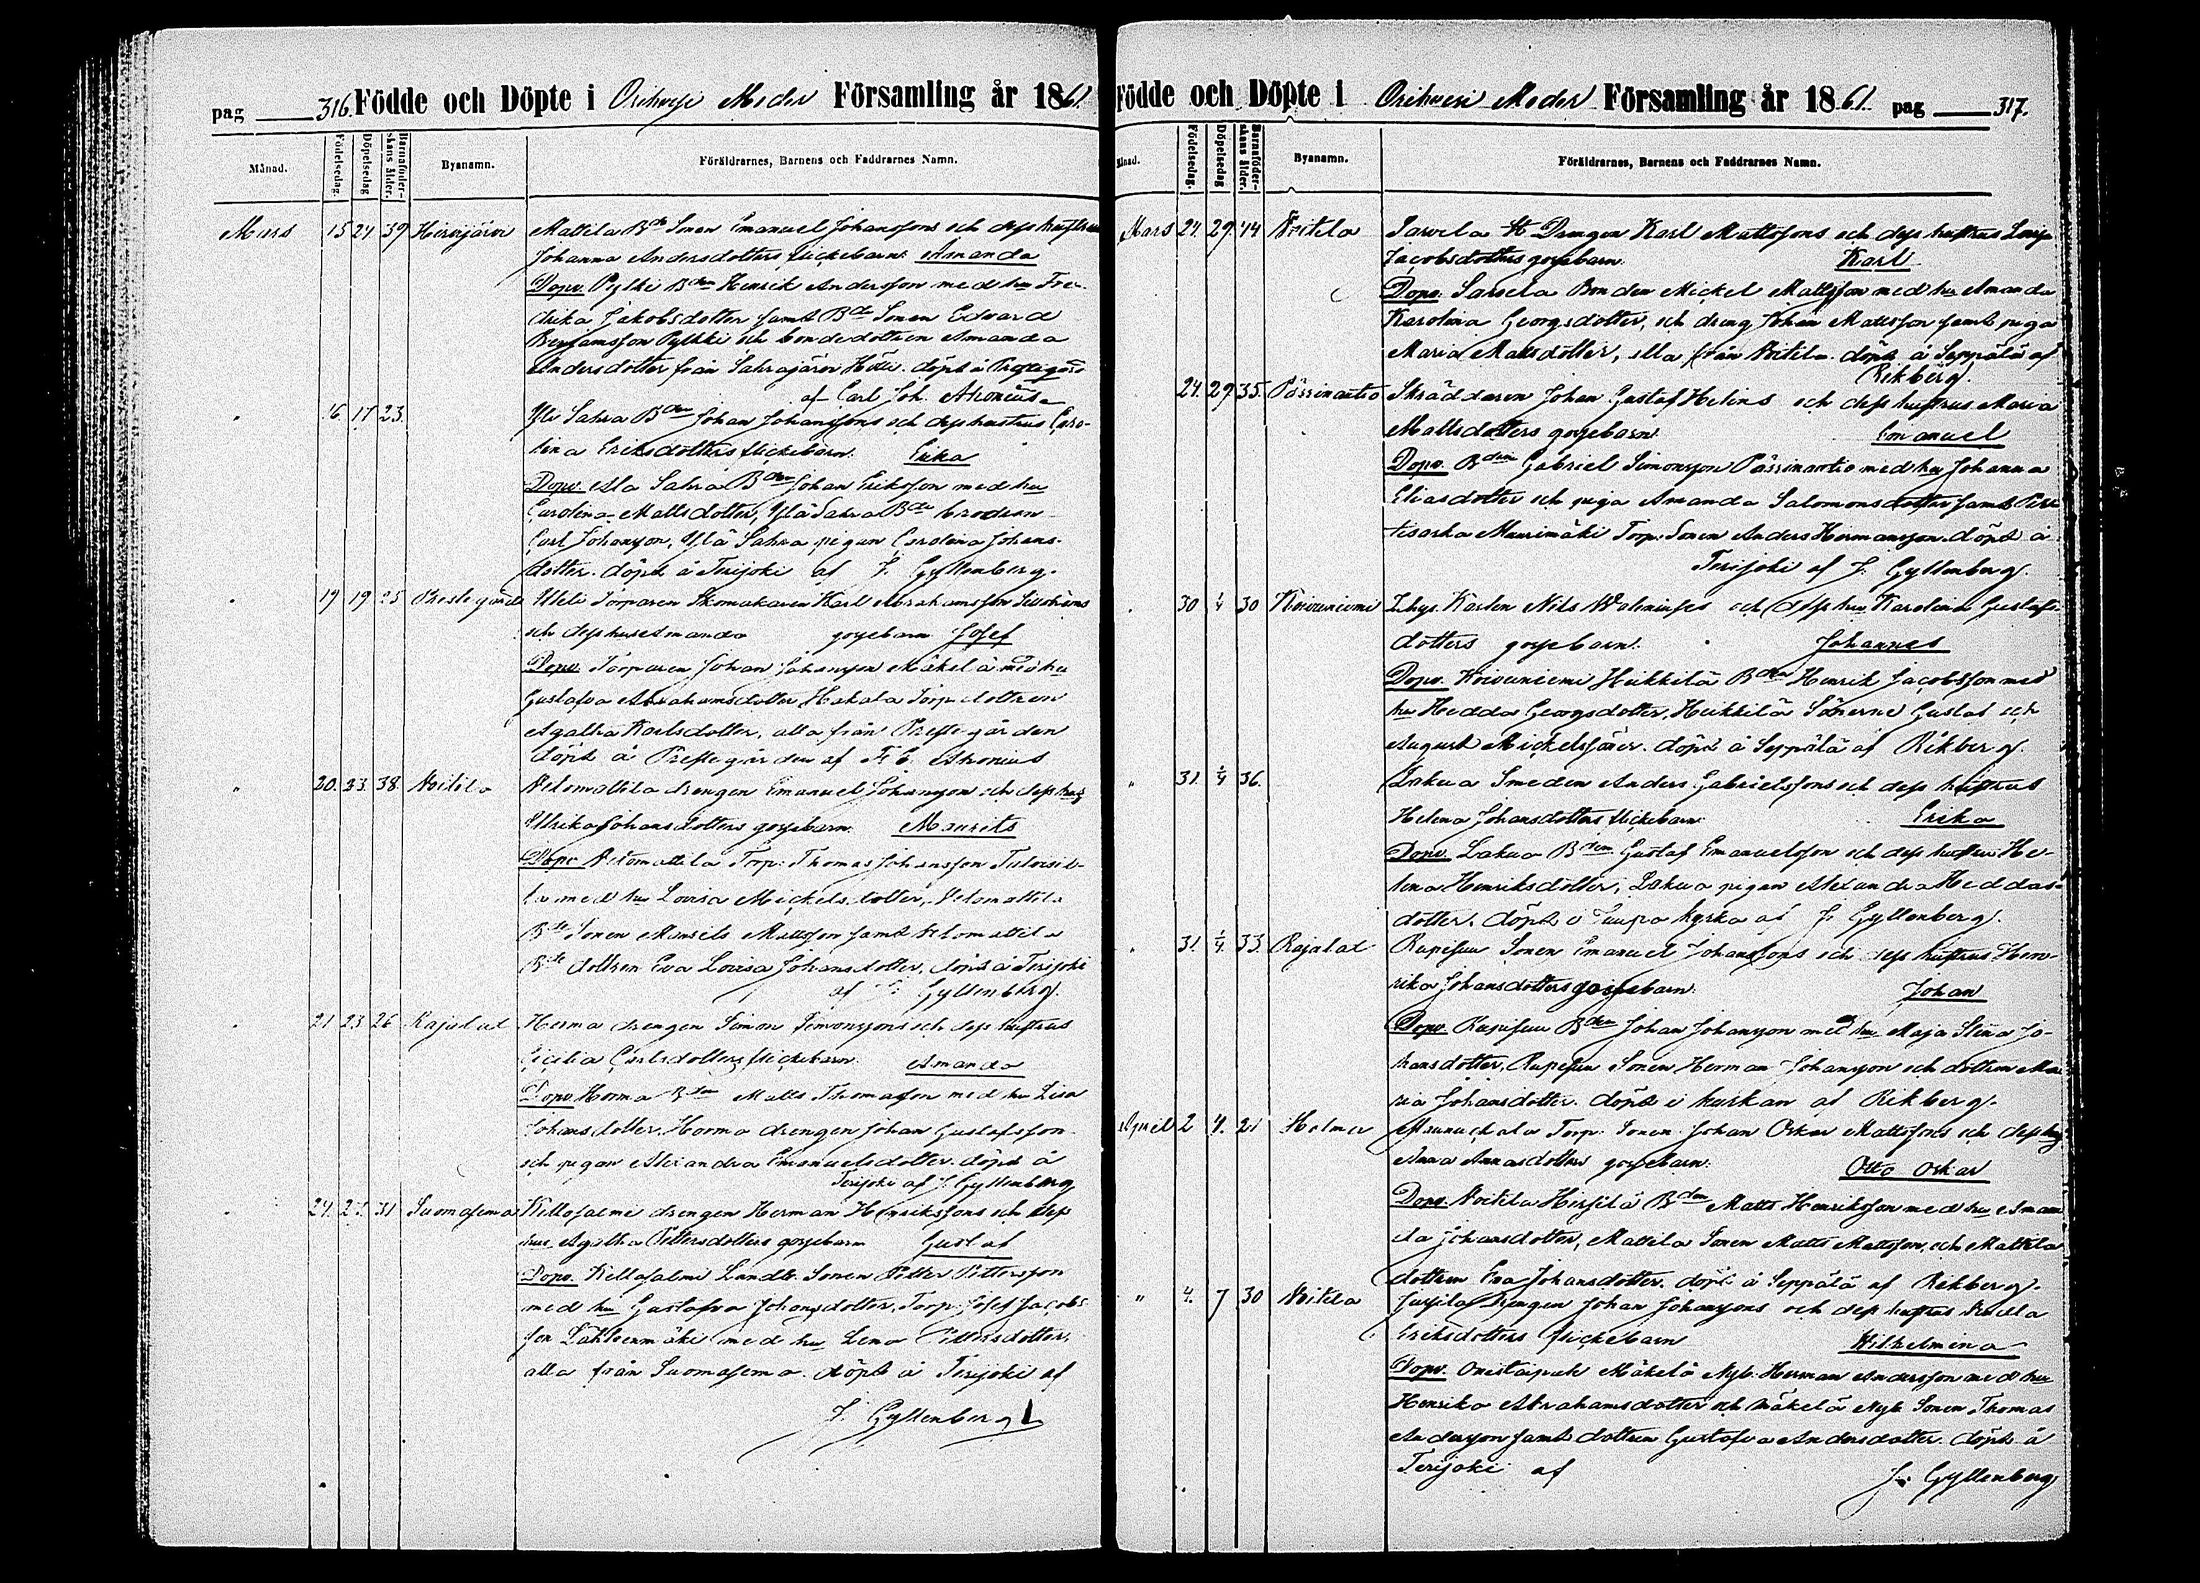 pag 316. Födde och Döpte i Orihvesi Moder Församling år 1861.
Månad. Födelsedag. Döpelsedag Barnaföder-skans ålder. Byanamn. Föräldrarnes, Barnens och Faddrarnes Namn.
Mars 15 24 39 Hirvijärvi Mattila Bde Sonen Emanuel Johanssons och dess hustrus
Johanna Andersdotters flickebarn Amanda
Dopv. Pylkki Bden Henrik Andersson med hu Fre-
drika Jakobsdotter samt Bde Sonen Edvard
Benjamsson Pylkki och bondedottren Amanda
Andersdotter från Sahrajärvi döpt å Prestegård
af Carl Joh. Aronius
" 16. 17 23. Yli Sahra Bden Johan Johanssons och dess hustrus Caro-
lina Eriksdotters flickebarn. Erika
Dopv. Ala Sahra Bden Johan Eriksson med hu
Carolina Mattsdotter, Ylä Sahra Bde brodren
Carl Johansson, Ylä Sahra pigan Carolina Johans-
dotter. döpt å Terijoki af J. Gyllenberg.
" 19 19 25 Prestegård Uleli Torparen Skomakaren Karl Abrahamsson
och dess hus Amanda gossebarn Josef
Dopv. Torparen Johan Johansson Mäkelä med hu
Gustafva Abrahamsdotter Hakala Torp dottren
Agatha Karlsdotter, alla från Prestegården
döpt å Prestegården af Aronius
" 20. 23. 38. Voitila Vetomattila drengen Emanuel Johansson och dess hus
Ulrika Johansdotters gossebarn. Maurits
Dopv Vetomattila Torp: Thomas Johansson
med hu Lovisa Mickelsdotter, Vetomattila
Bde Sonen Mattsson samt Vetomattila
Bde dottren Eva Lovisa Johansdotter, döpt å Terijoki
af J. Gyllenberg.
" 21 23 26 Rajalat Horma drengen Simon Simonssons och dess hustrus
Cicilia Carlsdotters flickebarn Amanda
Dopv. Horma Bden Matts Thomasson med hu Lisa
Johansdotter. Horma drengen Johan Gustafsson
och pigan Alexandra Emanuelsdotter. döpt å
Terijoki af J. Gyllenberg
" 24. 31 Suomasema Kellosalmi drengen Herman Henrikssons och dess
hus Agatha Pettersdotters gossebarn Gustaf
Dopv. Kellosalmi Landb. Sonen Petter Pettersson
med hu Gustafva Johansdotter, Torp. Josef Jacobs-
son Lähteenmäki med hu Lena Pettersdotter,
alla från Suomasema. döpt å Terijoki af
J. Gyllenberg
Födde och Döpte i Orihvesi Moder Församling år 1861. pag 317.
Månad. Födelsedag. Döpelsedag Barnaföder-skans ålder. Byanamn. Föräldrarnes, Barnens och Faddrarnes Namn.
Mars 24. 29. 44 Voitila Sarvela Drengen Karl Mattssons och dess hustrus Lovisa
Jacobsdotters gossebarn. Karl
Dopv. Sarvela Bonden Mickel Mattsson med hu Amanda
Karolina Georgsdotter, och dreng Johan Mattsson samt piga
Maria Mattsdotter, alla från Voitila. döpt å Seppälä af
Rikberg.
24. 29. 35. Pässinautio Skräddaren Johan Gustaf Helins och dess hustrus Maria
Mattsdotters gossebarn. Emanuel
Dopv. Bden Gabriel Simonsson Pässinautio med hu Johanna
Eliasdotter och piga Amanda Salomonsdotter samt Piri-
tisaska Maurimäki Torp. Sonen Anders Hermansson. döpt å
Terijoki af J. Gyllenberg.
" 30 1/4 30 Koivuniemi Inhys. Karlen Nils Valeniuses och dess hu Karolina Gustafs-
dotters gossebarn. Johannes
Dopv. Koivuniemi Heikkilä Bden Henrik Jacobsson med
hu Hedda Georgsdotter, Heikkilä Sönerne Gustaf och
August Mickelssöner. döpt å Seppälä af Rikberg.
" 31. 1/4 36. Lakua Smeden Anders Gabrielssons och dess hustrus
Helena Johansdotters flickebarn Erika
Dopv. Lakua Bden Gustaf Emanuelsson och dess hustru He-
lena Henriksdotter, Lakua pigan Alexandra Heddas-
dotter. döpt i kyrka af J. Gyllenberg.
" 31. 1/4. 33. Rajalat Rapesuu Sonen Emanuel Johanssons och dess hustrus Hen-
rika Johansdotters gossebarn. Johan
Dopv. Rapesuu Bden Johan Johansson med hu Maja Stina Jo-
hansdotter, Rapesuu Sonen Herman Johansson och dottren Ma-
ria Johansdotter. döpt i kyrkan af Rikberg.
April 2 4. 21 Holma Torp. Sonen Johan Oskar Mattssons och dess hus
Anna Annasdotters gossebarn. Otto Oskar
Dopv. Voitila Bden Matts Henriksson med hu Aman-
da Johansdotter, Mattila Sonen Matts Mattsson, och Mattila
dottren Eva Johansdotter. döpt å Seppälä af Rikberg.
" 4. 7 30 Voitila Drengen Johan Johanssons och dess hustrus
Eriksdotters flickebarn Wilhelmina
Dopv. Onistaipale Mäkelä Nyb. Herman Andersson med hu
Henrika Abrahamsdotter och Mäkelä Nyb Sonen Thomas
Andersson samt dottren Gustafva Andersdotter. döpt å
Terijoki af J. Gyllenberg